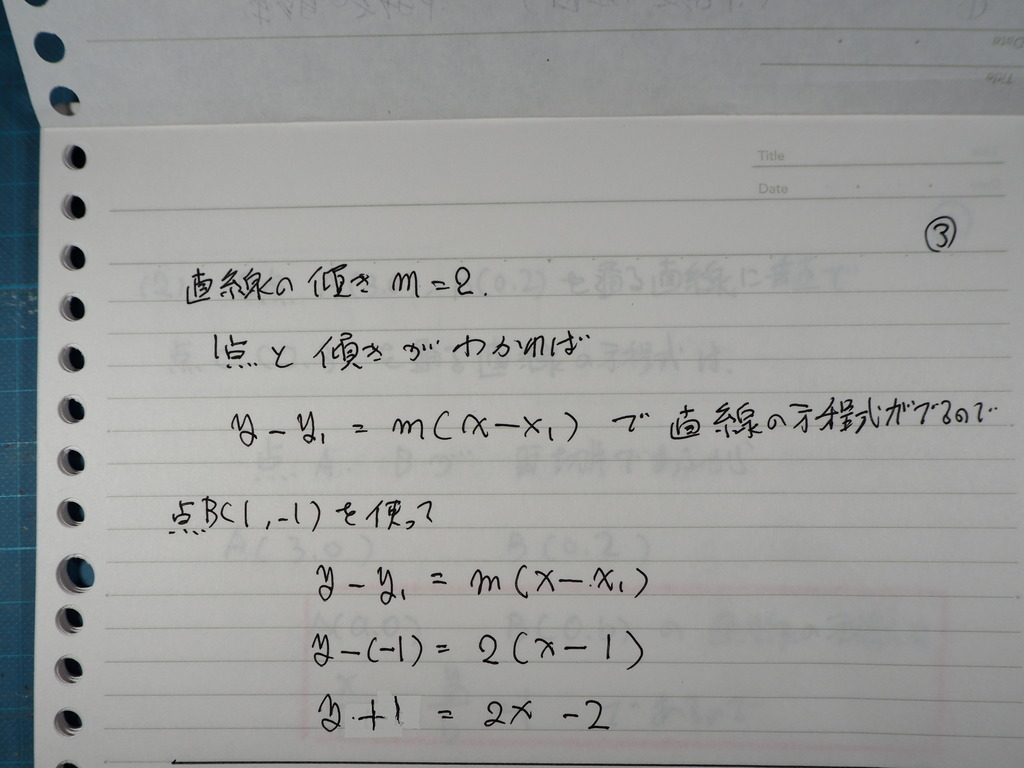 Title
Date
③
直線の傾き m=2.
1点と傾きがわかれば
y-y₁ = m(x-x₁) で直線の方程式がでるので
点B(1,-1)を使って
y-y₁ = m(x-x₁)
y-(-1) = 2(x-1)
y+1 = 2x-2